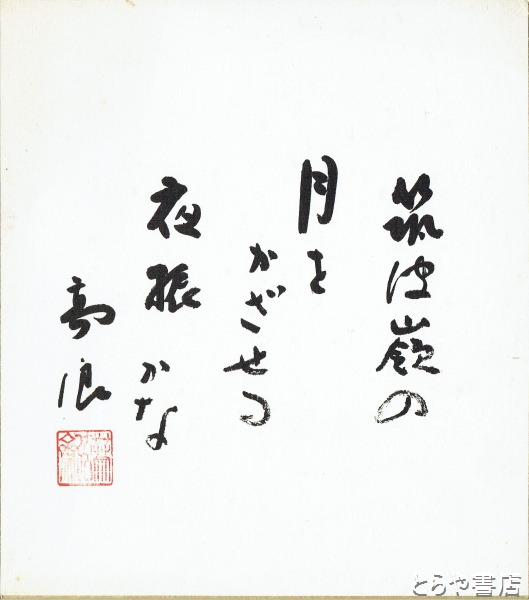 筑波嶺の
月を
かざせる
夜振かな
高浪
とらや書店